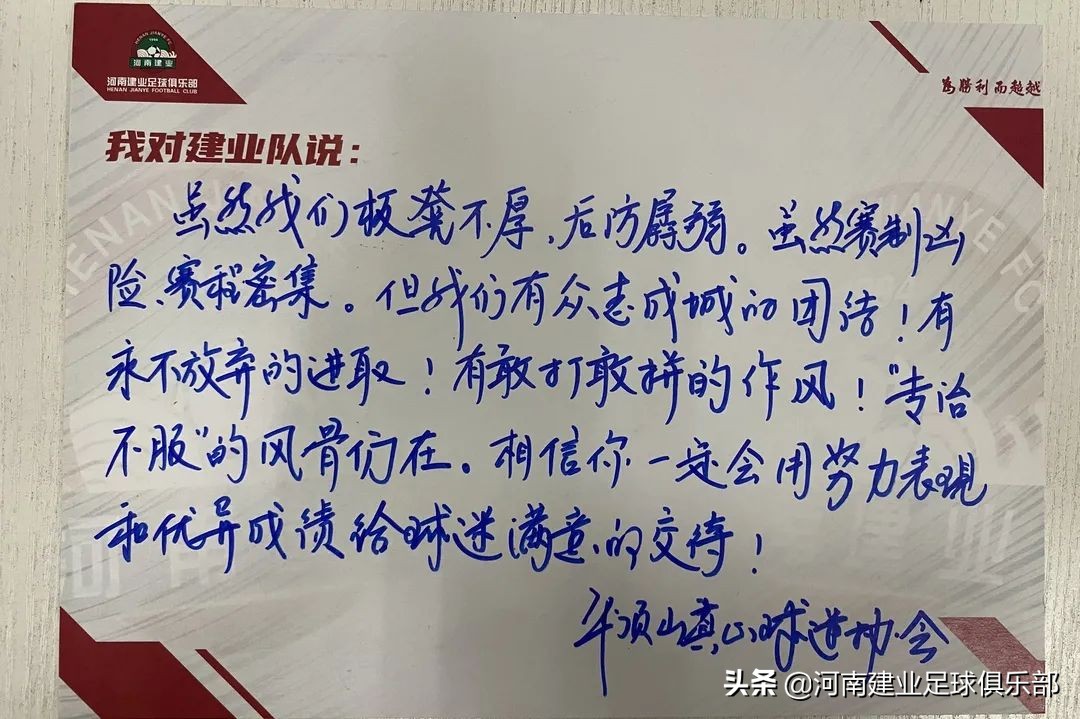 河南建业
河南建业足球俱乐部
HENAN JIANYE FOOTBALL CLUB
为胜利而超越
我对建业队说：
虽然我们板凳不厚，后防孱弱。虽然赛制凶
险、赛程密集。但我们有众志成城的团结！有
永不放弃的进取！有敢打敢拼的作风！“专治
不服”的风骨仍在。相信你一定会用努力表现
和优异成绩给球迷满意的交待！
平顶山真心球迷协会
头条 @河南建业足球俱乐部